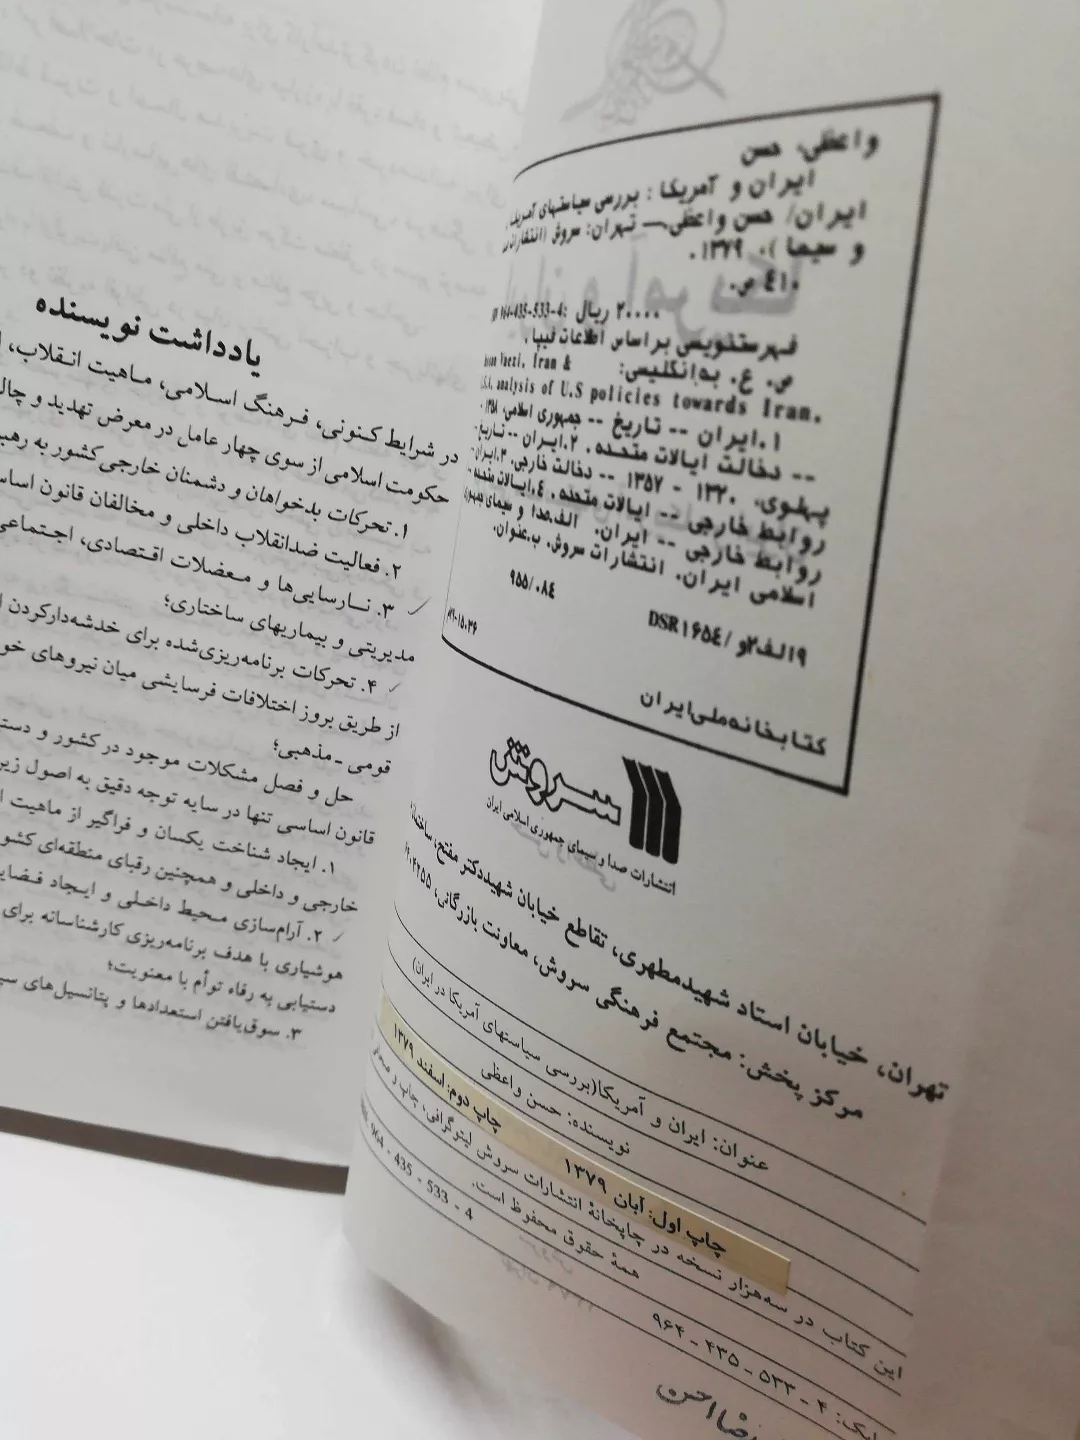 واعظی، حسن
ایران و آمریکا : بررسی سیاستهای آمریکا
ایران/ حسن واعظی.— تهران: سروش (انتشارات
و سیما )، ۱۳۷۹.
۴۱۰ ص.
۲۰۰۰۰ ریال :964-435-533-4
فهرستنویسی براساس اطلاعات فیپا.
ص. ع. به‌انگلیسی: Vaezi. Iran &
U.S.A. analysis of U.S policies towards Iran.
۱.ایران -- تاریخ -- جمهوری اسلامی، ۱۳۵۸ -
-- دخالت ایالات متحده. ۲.ایران -- تاریخ --
پهلوی، ۱۳۲۰ - ۱۳۵۷ -- دخالت خارجی. ۳.ایران --
روابط خارجی -- ایالات متحده. ۴.ایالات متحده --
روابط خارجی -- ایران. الف.صدا و سیمای جمهوری
اسلامی ایران. انتشارات سروش. ب.عنوان.
۹۵۵/۰۸۴
DSR۱۶۵۴/ و۲الف۱۹
۱۵۰۳۶
کتابخانه ملی ایران
سروش
انتشارات صدا و سیمای جمهوری اسلامی ایران
تهران، خیابان استاد شهید مطهری، تقاطع خیابان شهید دکتر مفتح، ساختمان
مرکز پخش: مجتمع فرهنگی سروش، معاونت بازرگانی،
عنوان: ایران و آمریکا(بررسی سیاستهای آمریکا در ایران)
نویسنده: حسن واعظی
چاپ اول: آبان ۱۳۷۹ چاپ دوم: اسفند ۱۳۷۹
این کتاب در سه‌هزار نسخه در چاپخانهٔ انتشارات سروش لیتوگرافی، چاپ و
همهٔ حقوق محفوظ است.
964 - 435 - 533 - 4
۹۶۴ - ۴۳۵ - ۵۳۳ - ۴
یادداشت نویسنده
در شرایط کنونی، فرهنگ اسلامی، ماهیت انقلاب،
حکومت اسلامی از سوی چهار عامل در معرض تهدید و
۱. تحرکات بدخواهان و دشمنان خارجی کشور به
۲. فعالیت ضدانقلاب داخلی و مخالفان قانون
✓ ۳. نارسایی‌ها و معضلات اقتصادی، اجتماعی
مدیریتی و بیماریهای ساختاری؛
✓ ۴. تحرکات برنامه‌ریزی‌شده برای خدشه‌دارکردن
از طریق بروز اختلافات فرسایشی میان نیروهای
قومی ـ مذهبی؛
حل و فصل مشکلات موجود در کشور و
قانون اساسی تنها در سایه توجه دقیق به اصول
۱. ایجاد شناخت یکسان و فراگیر از ماهیت
خارجی و داخلی و همچنین رقبای منطقه‌ای
✓ ۲. آرام‌سازی محیط داخلی و ایجاد
هوشیاری با هدف برنامه‌ریزی کارشناسانه برای
دستیابی به رفاه توأم با معنویت؛
۳. سوق‌یافتن استعدادها و پتانسیل‌های